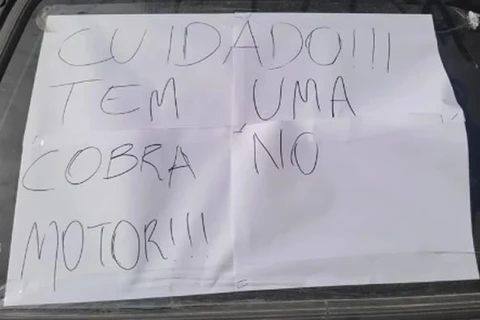 CUIDADO!!!
TEM UMA
COBRA NO
MOTOR!!!